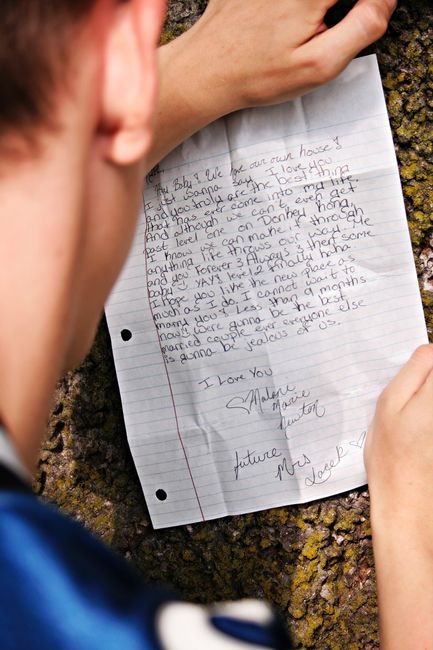 Hey Baby! We have our own house!
I just wanna say I love you
And you truly are the best thing
that has ever come into my life
And although we can't ever get
past level one on Donkey Kong,
I know we can make it through
anything life throws our way. Me
and you Forever & Always & then some
baby YAY! Level 2 Finally haha
I hope you like the new place as
much as I do. I cannot wait to
marry you! Less than 9 months
now! were gonna be the best
married couple ever everyone else
is gonna be jealous of us.
I Love You
Marie
Newton
future
Mrs